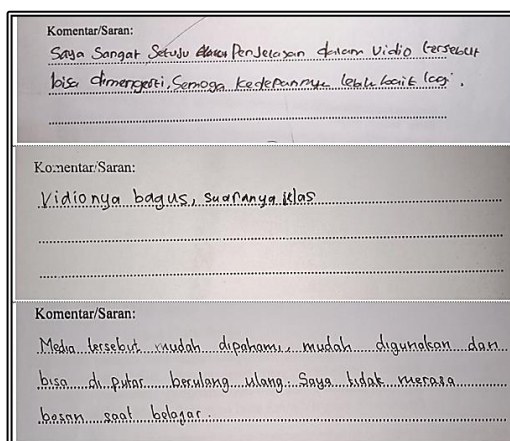 Komentar/Saran:
Saya Sangat Setuju Penjelasan dalam Vidio tersebut
bisa dimengerti, Semoga kedepannya lebih baik lagi.
Komentar/Saran:
Vidionya bagus, suaranya jelas
Komentar/Saran:
Media tersebut mudah dipahami, mudah digunakan dan
bisa di putar berulang ulang. Saya tidak merasa
bosan saat belajar.